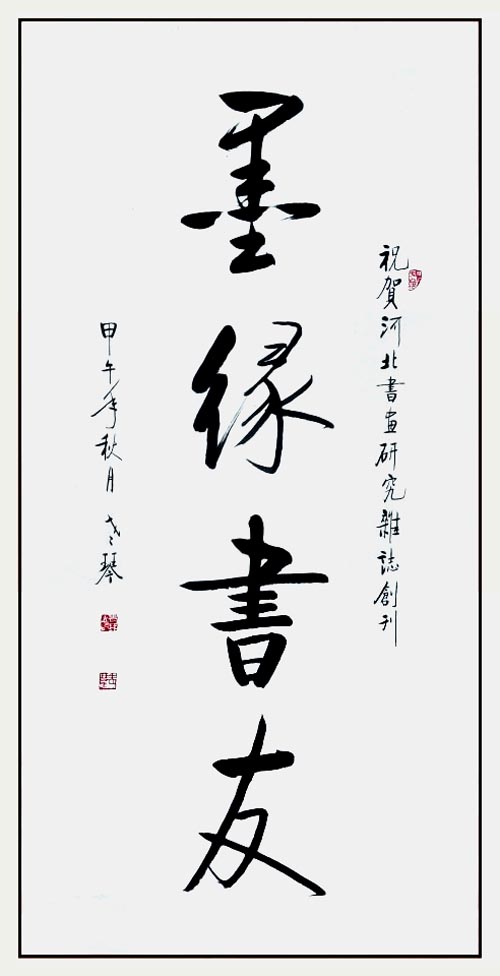 祝賀河北書畫研究雜誌創刊
墨缘書友
甲午年秋月
琴